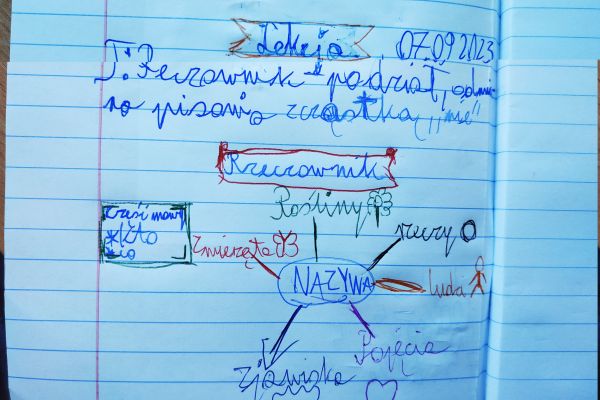 Lekcja 07.09.2023
T: Rzeczownik - podział, odmia
na pisownia z cząstką „nie”
Rzeczownik
Rośliny
część mowy
*kto
*co
Zwierzęta
rzeczy
NAZYWA
ludzi
Pojęcia
zjawiska